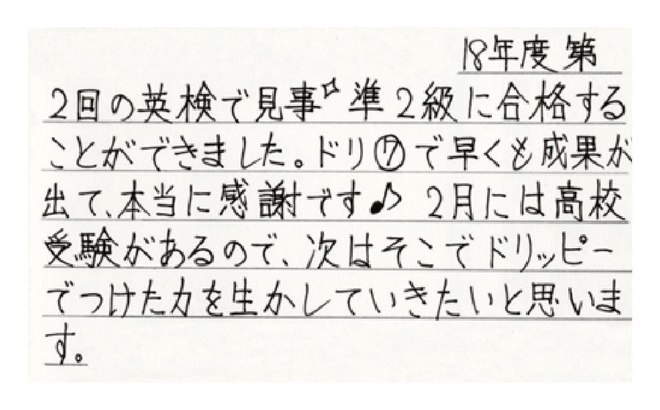 18年度第
2回の英検で見事☆準2級に合格する
ことができました。ドリ⑦で早くも成果が
出て、本当に感謝です♪ 2月には高校
受験があるので、次はそこでドリッピー
でつけた力を生かしていきたいと思いま
す。